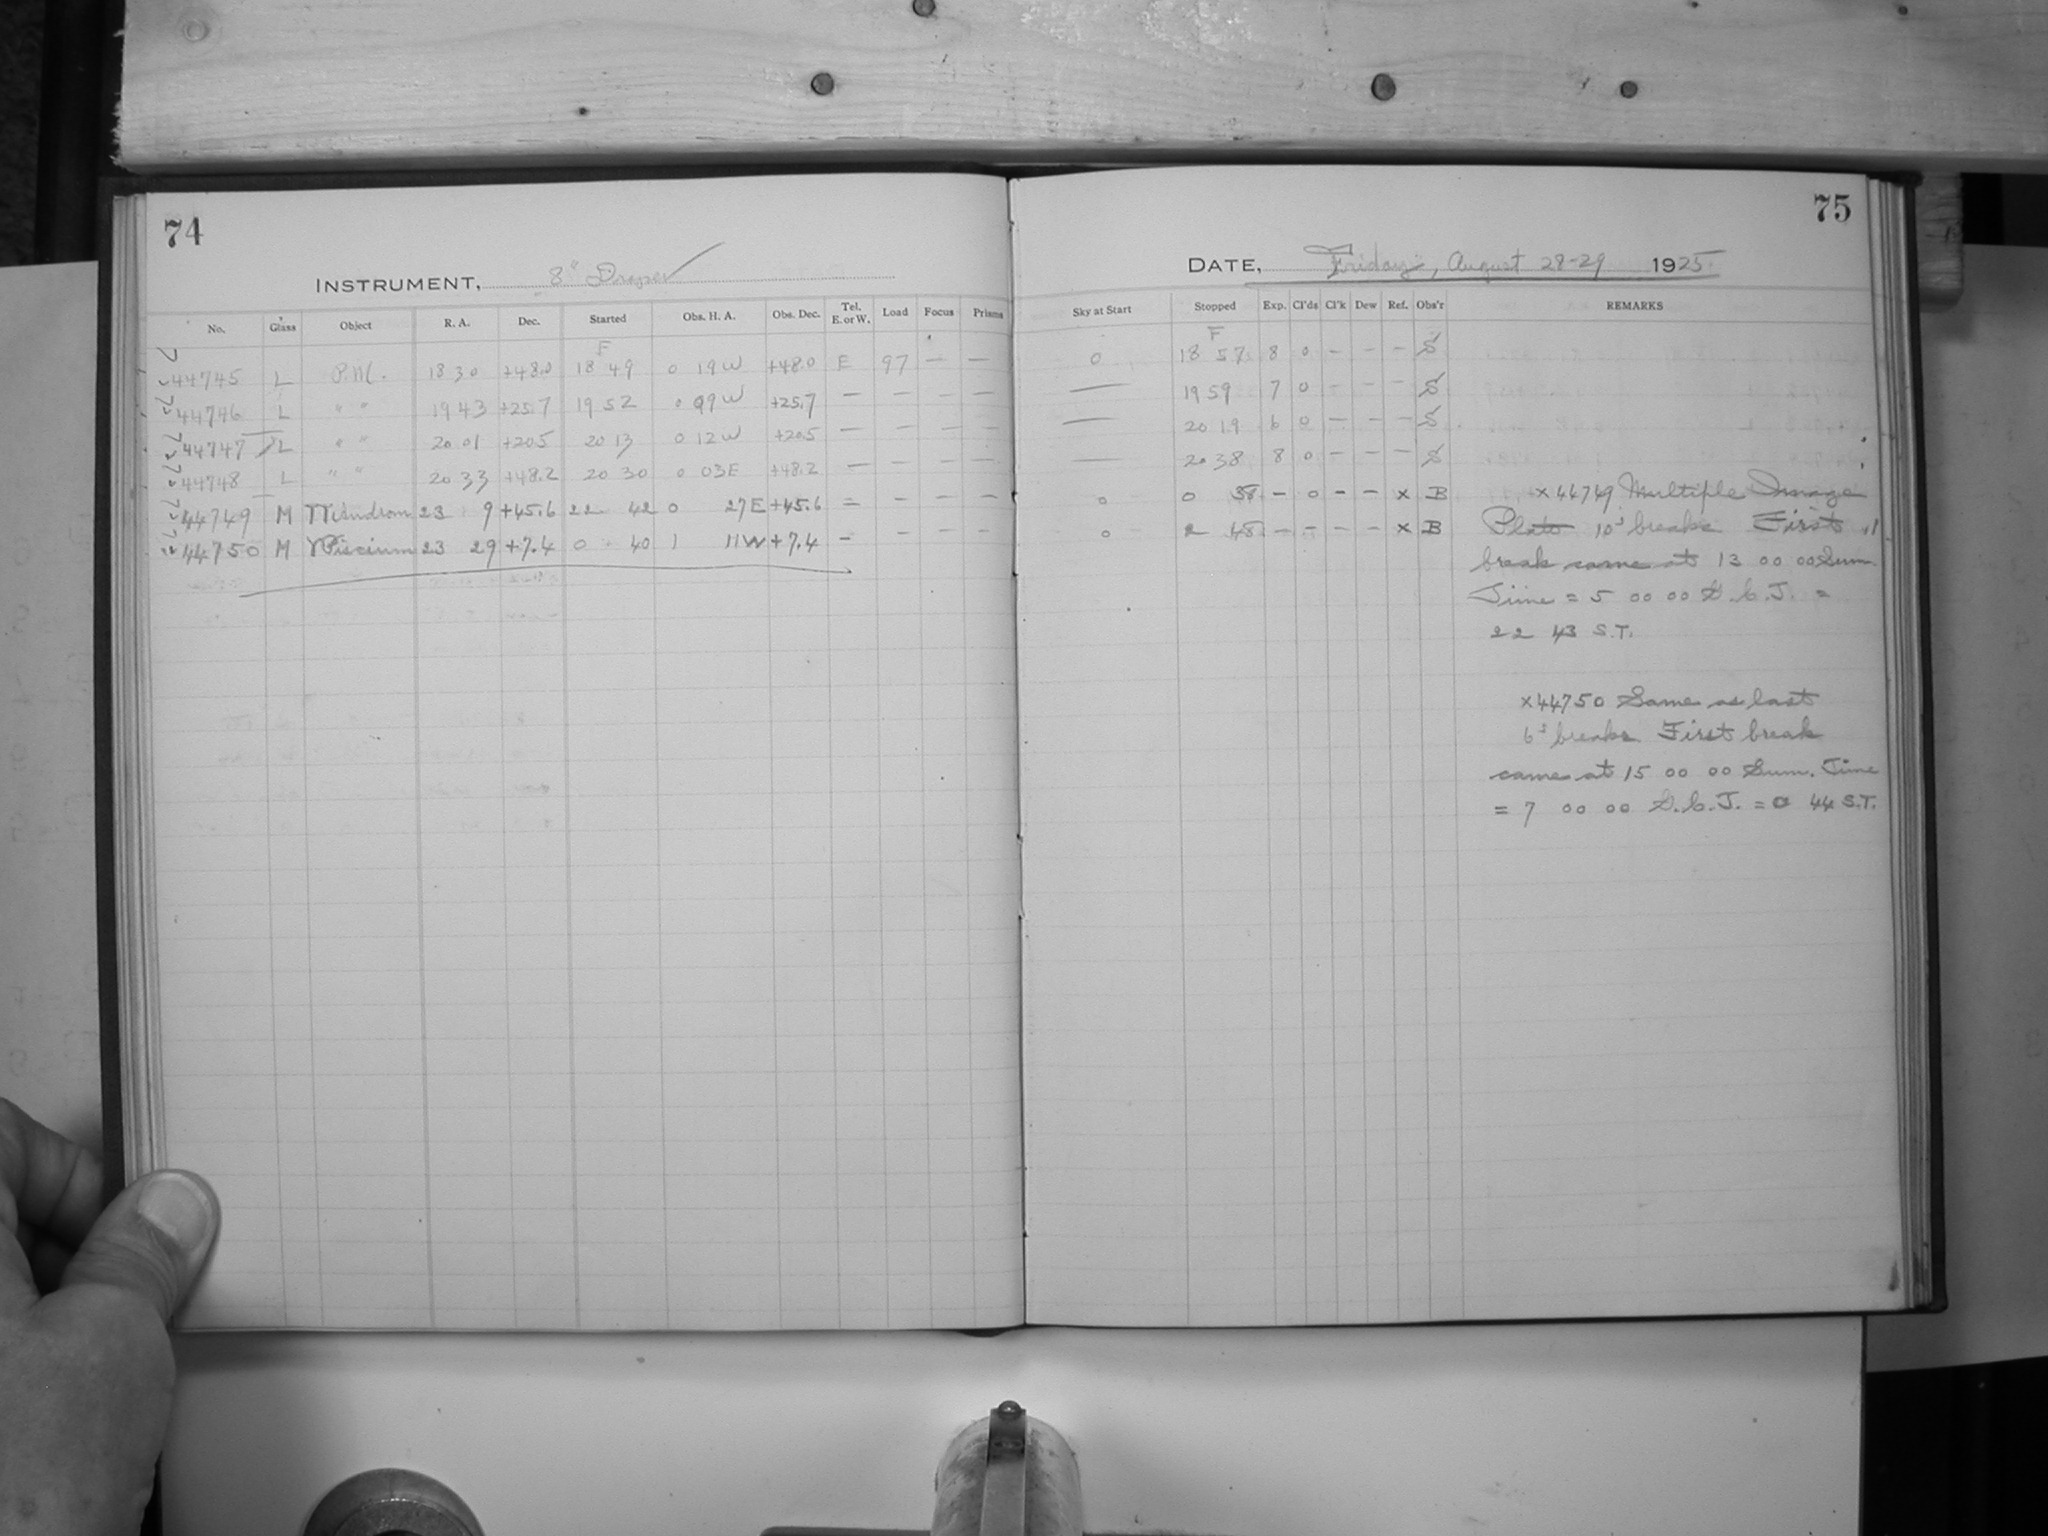 74
INSTRUMENT, 8" Draper
No. Glass Object R. A. Dec. Started Obs. H. A. Obs. Dec. Tel. E. or W. Load Focus Prisms
F
44745 L P.M. 18 30 +48.0 18 49 0 19 W +48.0 E 97 — —
44746 L " " 19 43 +25.7 19 52 0 09 W +25.7 — — — —
44747 L " " 20 01 +20.5 20 13 0 12 W +20.5 — — — —
44748 L " " 20 33 +48.2 20 30 0 03 E +48.2 — — — —
44749 M 23 9 +45.6 22 42 0 27 E +45.6 = — — —
44750 M Piscium 23 29 +7.4 0 40 1 11 W +7.4 — — — —
75
DATE, Friday, August 28-29 1925
Sky at Start Stopped Exp. Cl'ds Cl'k Dew Ref. Obs'r REMARKS
F
0 18 57 8 0 – – – S
— 19 59 7 0 – – – S
— 20 19 6 0 – – – S
— 20 38 8 0 – – – S
0 0 38 – 0 – – x B x 44749 Multiple Image
0 2 48 – – – – x B Plate 10s breaks First
break came at 13 00 00 Sum.
Time = 5 00 00 G.C.T. =
22 43 S.T.
x 44750 Same as last
6s breaks First break
came at 15 00 00 Sum. Time
= 7 00 00 G.C.T. = 0 44 S.T.